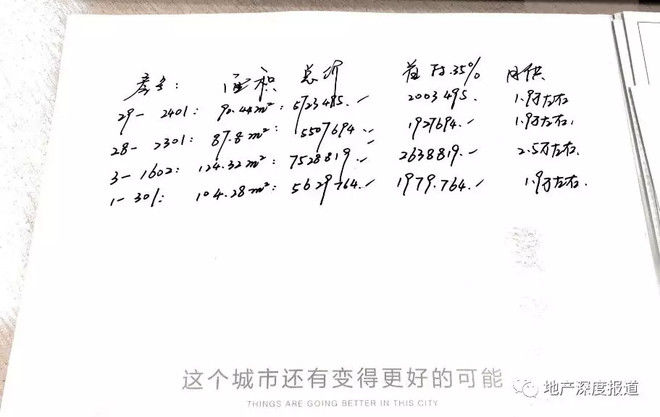 房号: 面积 总价 首付35% 月供
29-2401: 90.44m²: 5723485. 2003495. 1.9万左右
28-2301: 87.8m²: 5507694. 1927694. 1.9万左右.
3-1602: 124.32m²: 7528819. 2638819. 2.5万左右.
1-301: 104.28m²: 5629764. 1979.764. 1.9万左右.
这个城市还有变得更好的可能
THINGS ARE GOING BETTER IN THIS CITY
地产深度报道